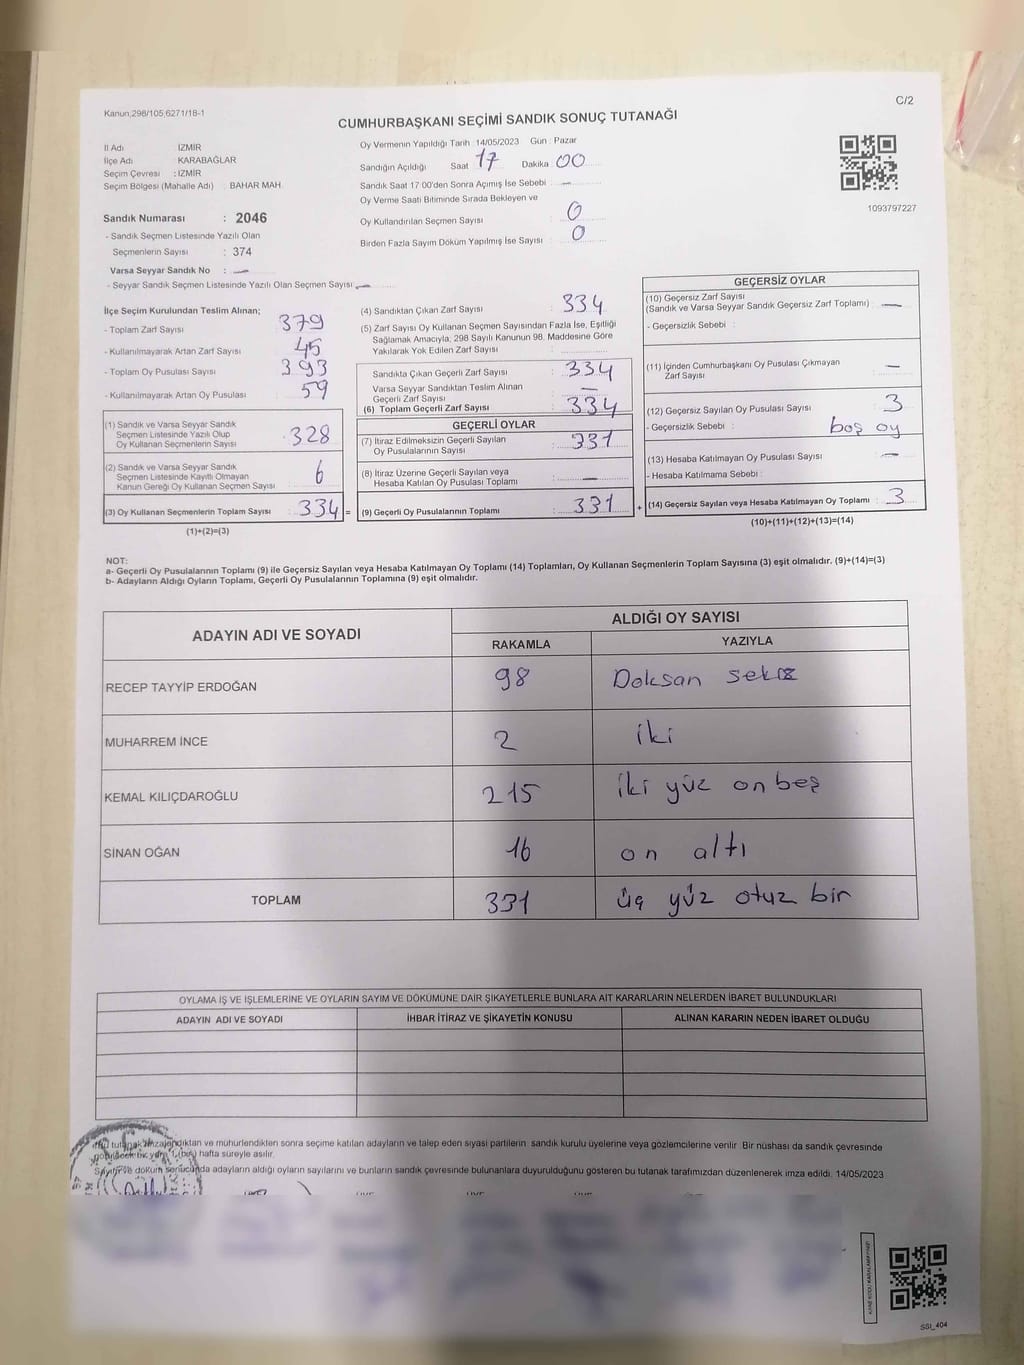 Kanun;298/105,6271/18-1
C/2
CUMHURBAŞKANI SEÇİMİ SANDIK SONUÇ TUTANAĞI
İl Adı : İZMİR
İlçe Adı : KARABAĞLAR
Seçim Çevresi : İZMİR
Seçim Bölgesi (Mahalle Adı) : BAHAR MAH.
Sandık Numarası : 2046
- Sandık Seçmen Listesinde Yazılı Olan
Seçmenlerin Sayısı : 374
Varsa Seyyar Sandık No : —
- Seyyar Sandık Seçmen Listesinde Yazılı Olan Seçmen Sayısı : —
Oy Vermenin Yapıldığı Tarih : 14/05/2023 Gün : Pazar
Sandığın Açıldığı Saat 17 Dakika 00
Sandık Saat 17:00'den Sonra Açımış İse Sebebi : —
Oy Verme Saati Bitiminde Sırada Bekleyen ve
Oy Kullandırılan Seçmen Sayısı : 0
Birden Fazla Sayım Döküm Yapılmış İse Sayısı : 0
1093797227
İlçe Seçim Kurulundan Teslim Alınan;
- Toplam Zarf Sayısı : 379
- Kullanılmayarak Artan Zarf Sayısı : 45
- Toplam Oy Pusulası Sayısı : 393
- Kullanılmayarak Artan Oy Pusulası : 59
(1) Sandık ve Varsa Seyyar Sandık
Seçmen Listesinde Yazılı Olup
Oy Kullanan Seçmenlerin Sayısı : 328
(2) Sandık ve Varsa Seyyar Sandık
Seçmen Listesinde Kayıtlı Olmayan
Kanun Gereği Oy Kullanan Seçmen Sayısı : 6
(3) Oy Kullanan Seçmenlerin Toplam Sayısı : 334 =
(1)+(2)=(3)
(4) Sandıktan Çıkan Zarf Sayısı : 334
(5) Zarf Sayısı Oy Kullanan Seçmen Sayısından Fazla İse, Eşitliği
Sağlamak Amacıyla, 298 Sayılı Kanunun 98. Maddesine Göre
Yakılarak Yok Edilen Zarf Sayısı :
Sandıkta Çıkan Geçerli Zarf Sayısı : 334
Varsa Seyyar Sandıktan Teslim Alınan
Geçerli Zarf Sayısı : —
(6) Toplam Geçerli Zarf Sayısı : 334
GEÇERLİ OYLAR
(7) İtiraz Edilmeksizin Geçerli Sayılan
Oy Pusulalarının Sayısı : 331
(8) İtiraz Üzerine Geçerli Sayılan veya
Hesaba Katılan Oy Pusulası Toplamı : —
(9) Geçerli Oy Pusulalarının Toplamı : 331 +
GEÇERSİZ OYLAR
(10) Geçersiz Zarf Sayısı
(Sandık ve Varsa Seyyar Sandık Geçersiz Zarf Toplamı) : —
- Geçersizlik Sebebi :
(11) İçinden Cumhurbaşkanı Oy Pusulası Çıkmayan
Zarf Sayısı : —
(12) Geçersiz Sayılan Oy Pusulası Sayısı : 3
- Geçersizlik Sebebi : boş oy
(13) Hesaba Katılmayan Oy Pusulası Sayısı : —
- Hesaba Katılmama Sebebi :
(14) Geçersiz Sayılan veya Hesaba Katılmayan Oy Toplamı : 3
(10)+(11)+(12)+(13)=(14)
NOT:
a- Geçerli Oy Pusulalarının Toplamı (9) ile Geçersiz Sayılan veya Hesaba Katılmayan Oy Toplamı (14) Toplamları, Oy Kullanan Seçmenlerin Toplam Sayısına (3) eşit olmalıdır. (9)+(14)=(3)
b- Adayların Aldığı Oyların Toplamı, Geçerli Oy Pusulalarının Toplamına (9) eşit olmalıdır.
ADAYIN ADI VE SOYADI
ALDIĞI OY SAYISI
RAKAMLA YAZIYLA
RECEP TAYYİP ERDOĞAN 98 Doksan sekiz
MUHARREM İNCE 2 iki
KEMAL KILIÇDAROĞLU 215 iki yüz onbeş
SİNAN OĞAN 16 on altı
TOPLAM 331 üç yüz otuz bir
OYLAMA İŞ VE İŞLEMLERİNE VE OYLARIN SAYIM VE DÖKÜMÜNE DAİR ŞİKAYETLERLE BUNLARA AİT KARARLARIN NELERDEN İBARET BULUNDUKLARI
ADAYIN ADI VE SOYADI İHBAR İTİRAZ VE ŞİKAYETİN KONUSU ALINAN KARARIN NEDEN İBARET OLDUĞU
tutanak imzalandıktan ve mühürlendikten sonra seçime katılan adayların ve talep eden siyasi partilerin sandık kurulu üyelerine veya gözlemcilerine verilir. Bir nüshası da sandık çevresinde
hafta süreyle asılır.
Sayım ve döküm sonucunda adayların aldığı oyların sayılarını ve bunların sandık çevresinde bulunanlara duyurulduğunu gösteren bu tutanak tarafımızdan düzenlenerek imza edildi. 14/05/2023
SSI_404